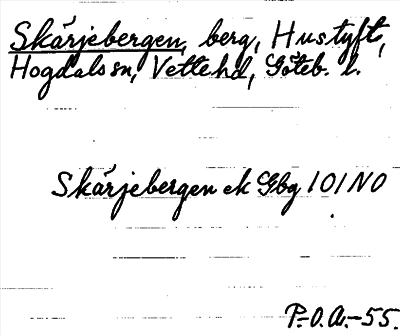 Skärjebergen, berg, Hustyft,
Hogdals sn, Vette hd, Göteb. l.
Skärjebergen ek Gbg 101 NO
P.-O.A.-55.